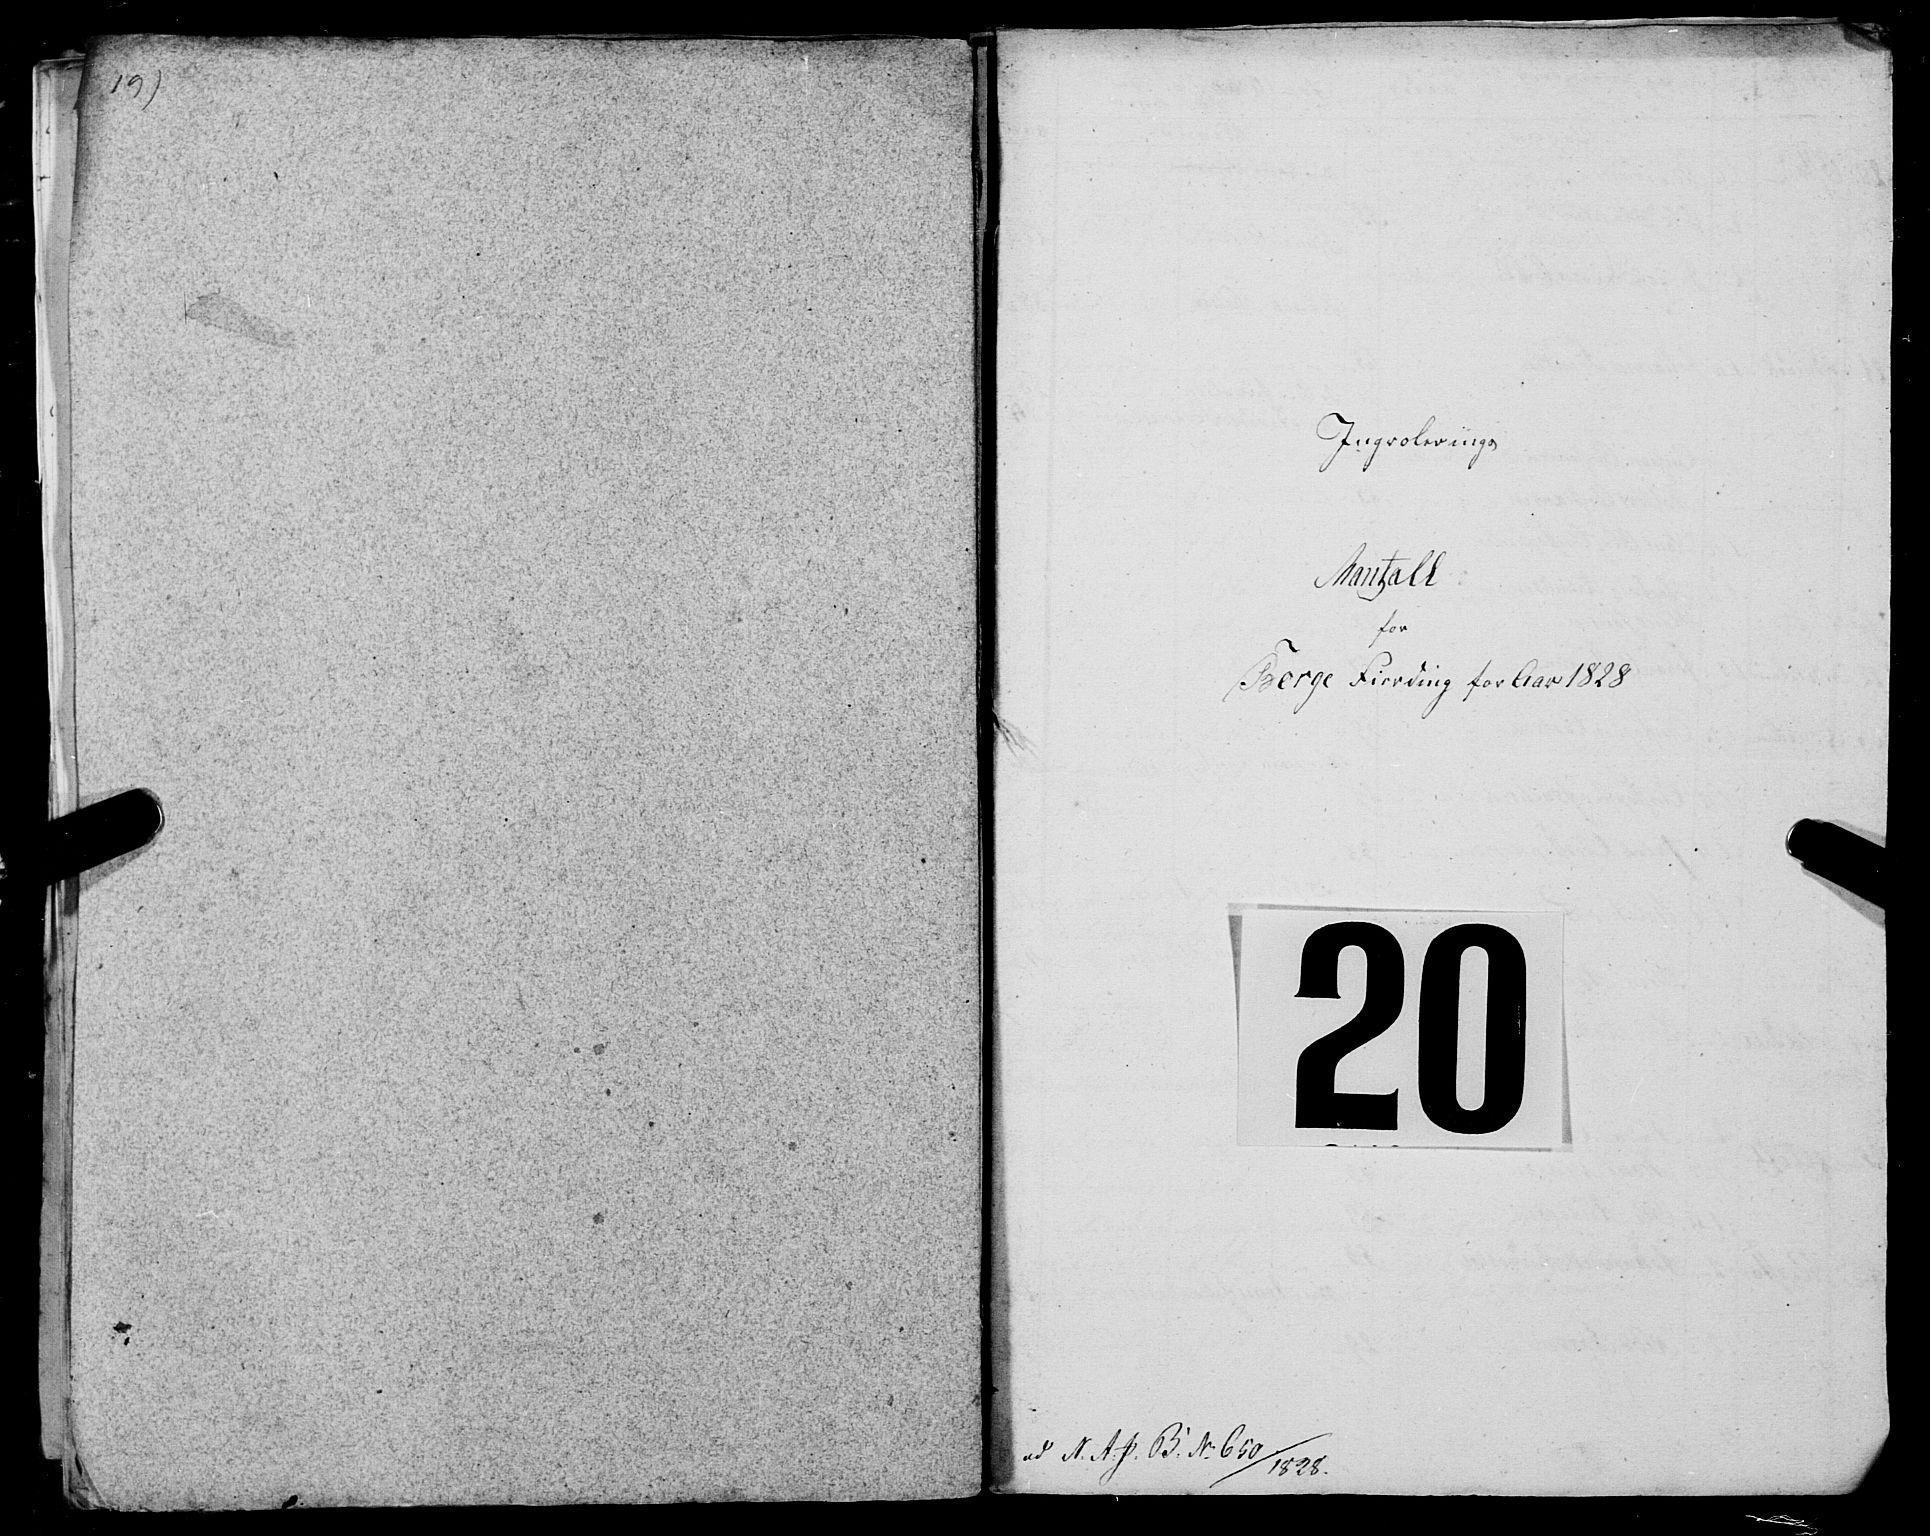 19)
Ingrolerings
Mantall
for
Berge Fierding for Aar 1828
20
ad N. A. J. B. No 650/1828.